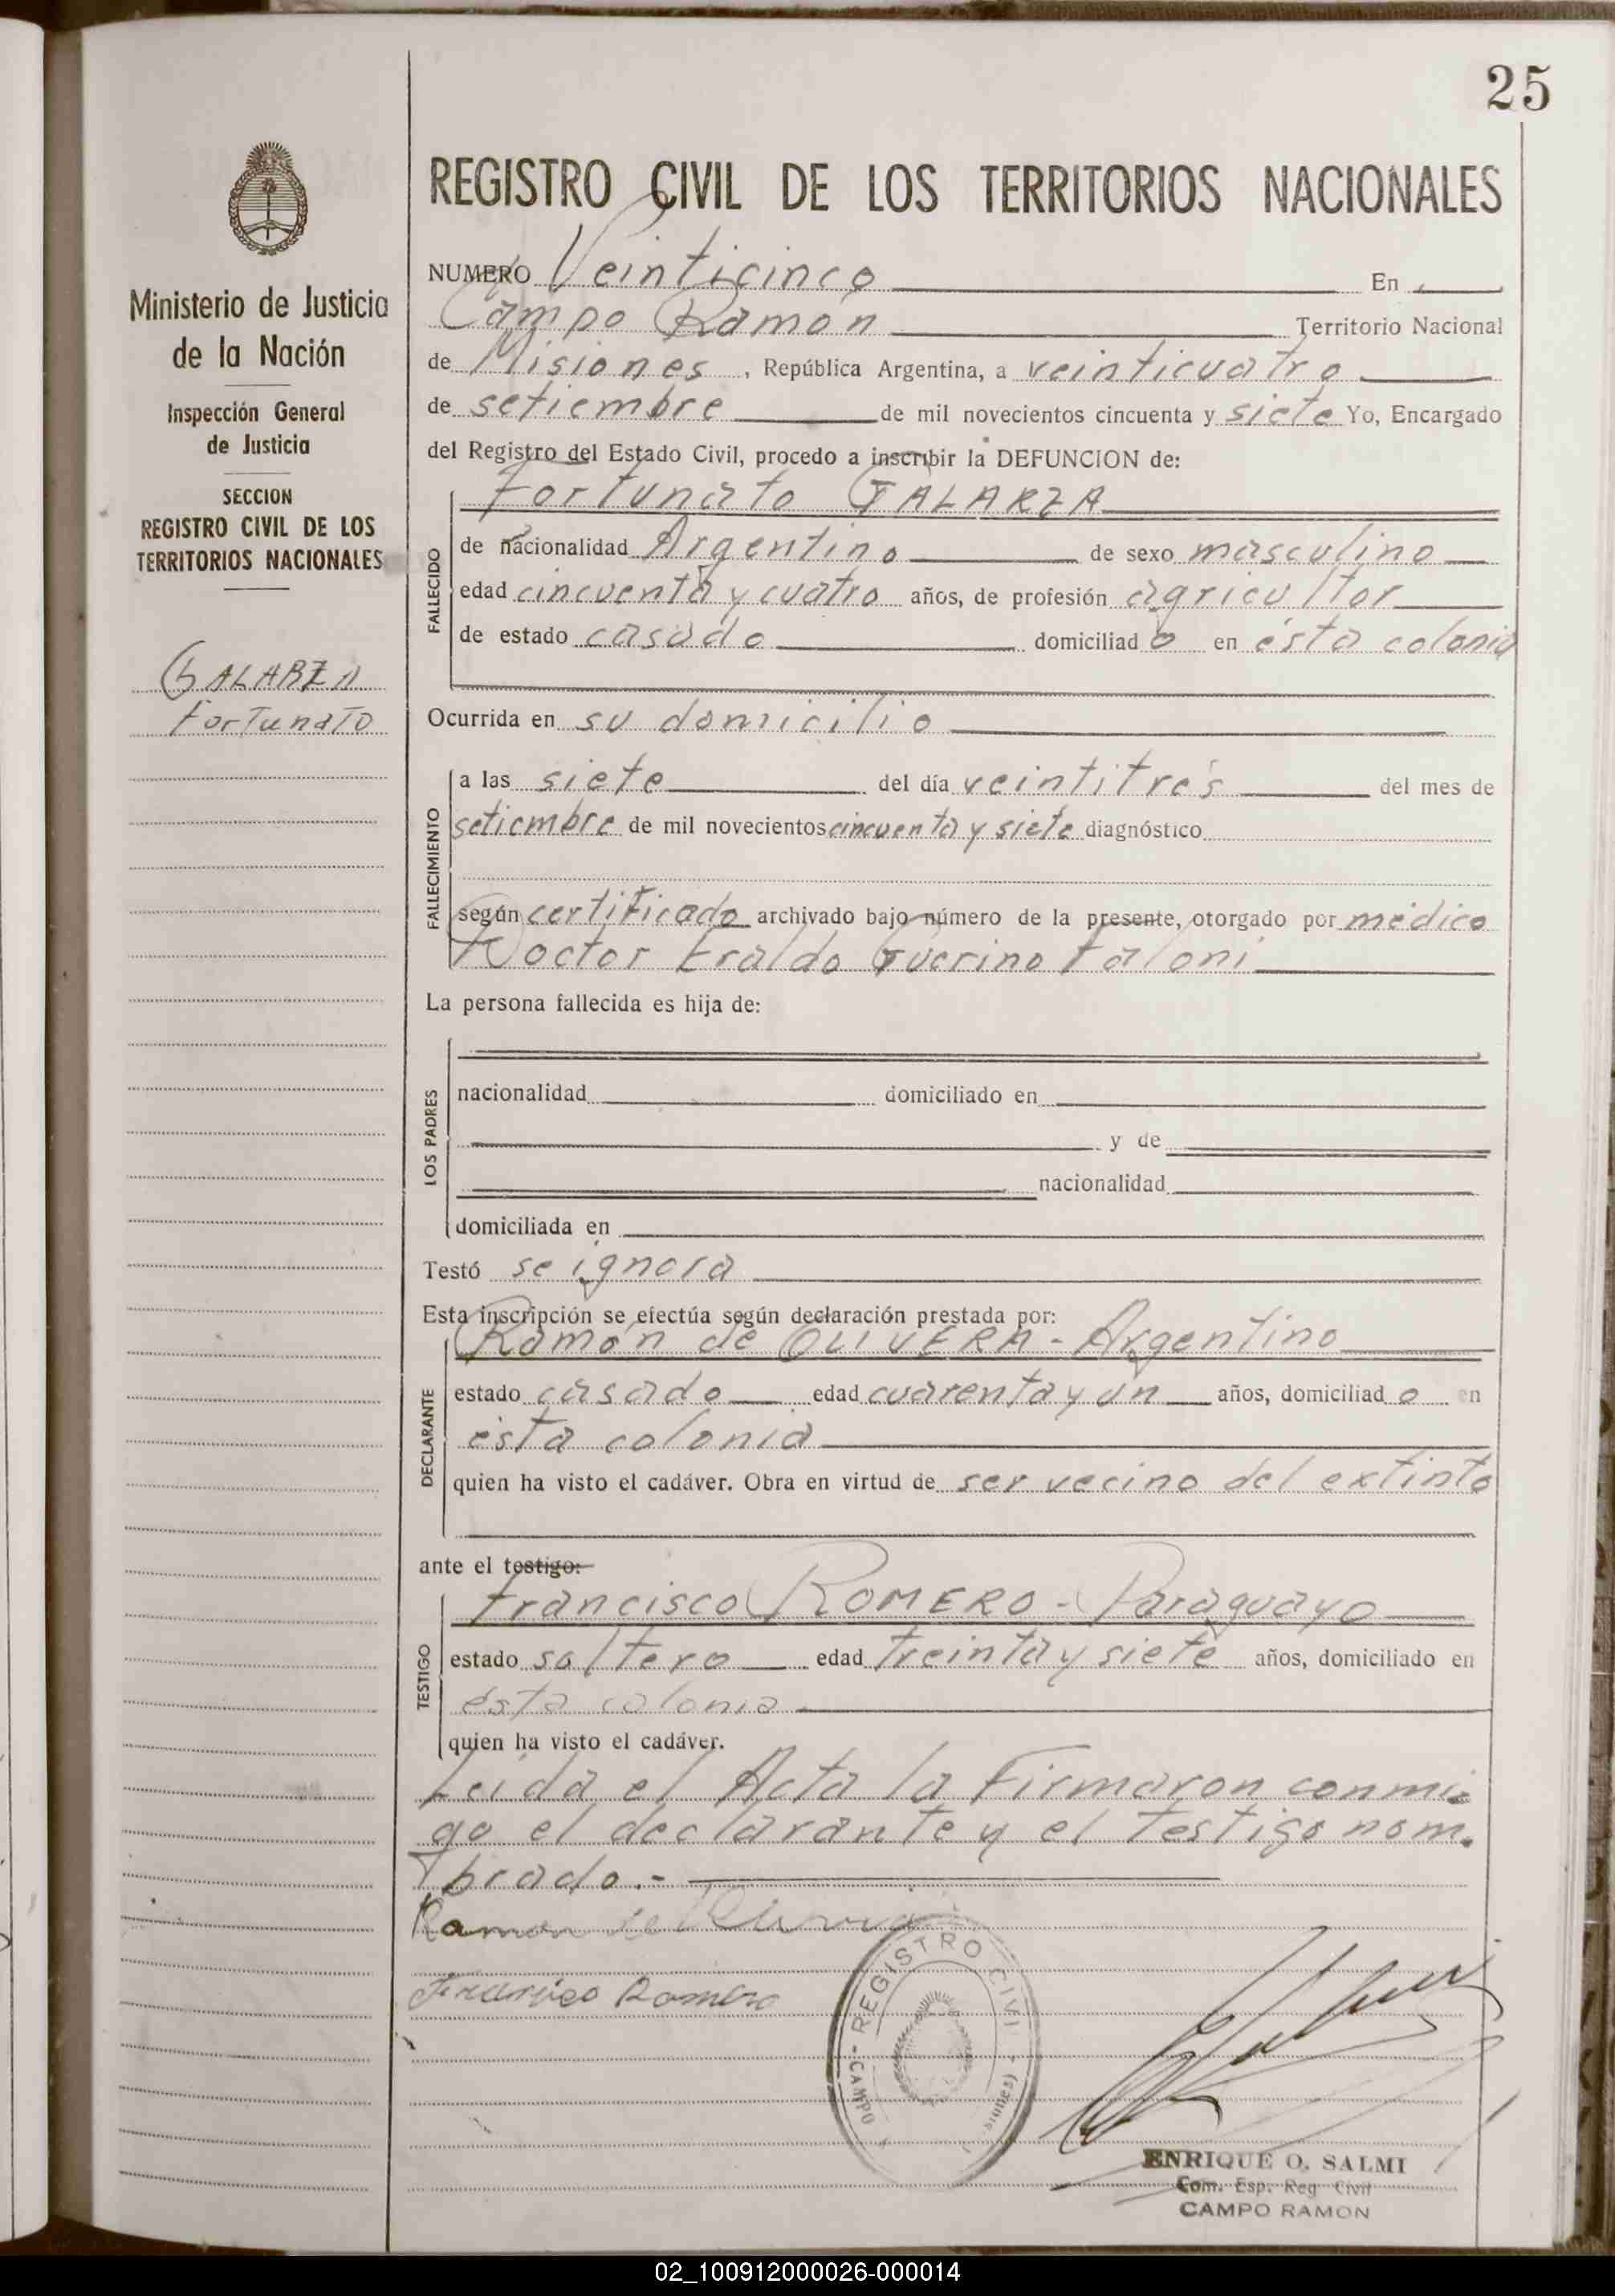 25
REGISTRO CIVIL DE LOS TERRITORIOS NACIONALES
Ministerio de Justicia
de la Nación
Inspección General
de Justicia
SECCION
REGISTRO CIVIL DE LOS
TERRITORIOS NACIONALES
GALARZA
Fortunato
NUMERO Veinticinco En
Campo Ramón Territorio Nacional
de Misiones, República Argentina, a veinticuatro
de setiembre de mil novecientos cincuenta y siete Yo, Encargado
del Registro del Estado Civil, procedo a inscribir la DEFUNCION de:
Fortunato GALARZA
FALLECIDO
de nacionalidad Argentino de sexo masculino
edad cincuenta y cuatro años, de profesión agricultor
de estado casado domiciliado en ésta colonia
Ocurrida en su domicilio
FALLECIMIENTO
a las siete del día veintitrés del mes de
setiembre de mil novecientos cincuenta y siete diagnóstico
según certificado archivado bajo número de la presente, otorgado por médico
Doctor Eraldo Guerino Faloni
La persona fallecida es hija de:
LOS PADRES
nacionalidad domiciliado en
y de
nacionalidad
domiciliada en
Testó se ignora
Esta inscripción se efectúa según declaración prestada por:
Ramón de OLIVERA - Argentino
DECLARANTE
estado casado edad cuarenta y un años, domiciliado en
ésta colonia
quien ha visto el cadáver. Obra en virtud de ser vecino del extinto
ante el testigo:
Francisco ROMERO - Paraguayo
TESTIGO
estado soltero edad treinta y siete años, domiciliado en
ésta colonia
quien ha visto el cadáver.
Leída el Acta la firmaron conmi-
go el declarante y el testigo nom-
brado.-
Ramon de Olivera
Francisco Romero
REGISTRO CIVI
- CAMPO
siones)
ENRIQUE O. SALMI
Com. Esp. Reg. Civil
CAMPO RAMON
02_100912000026-000014